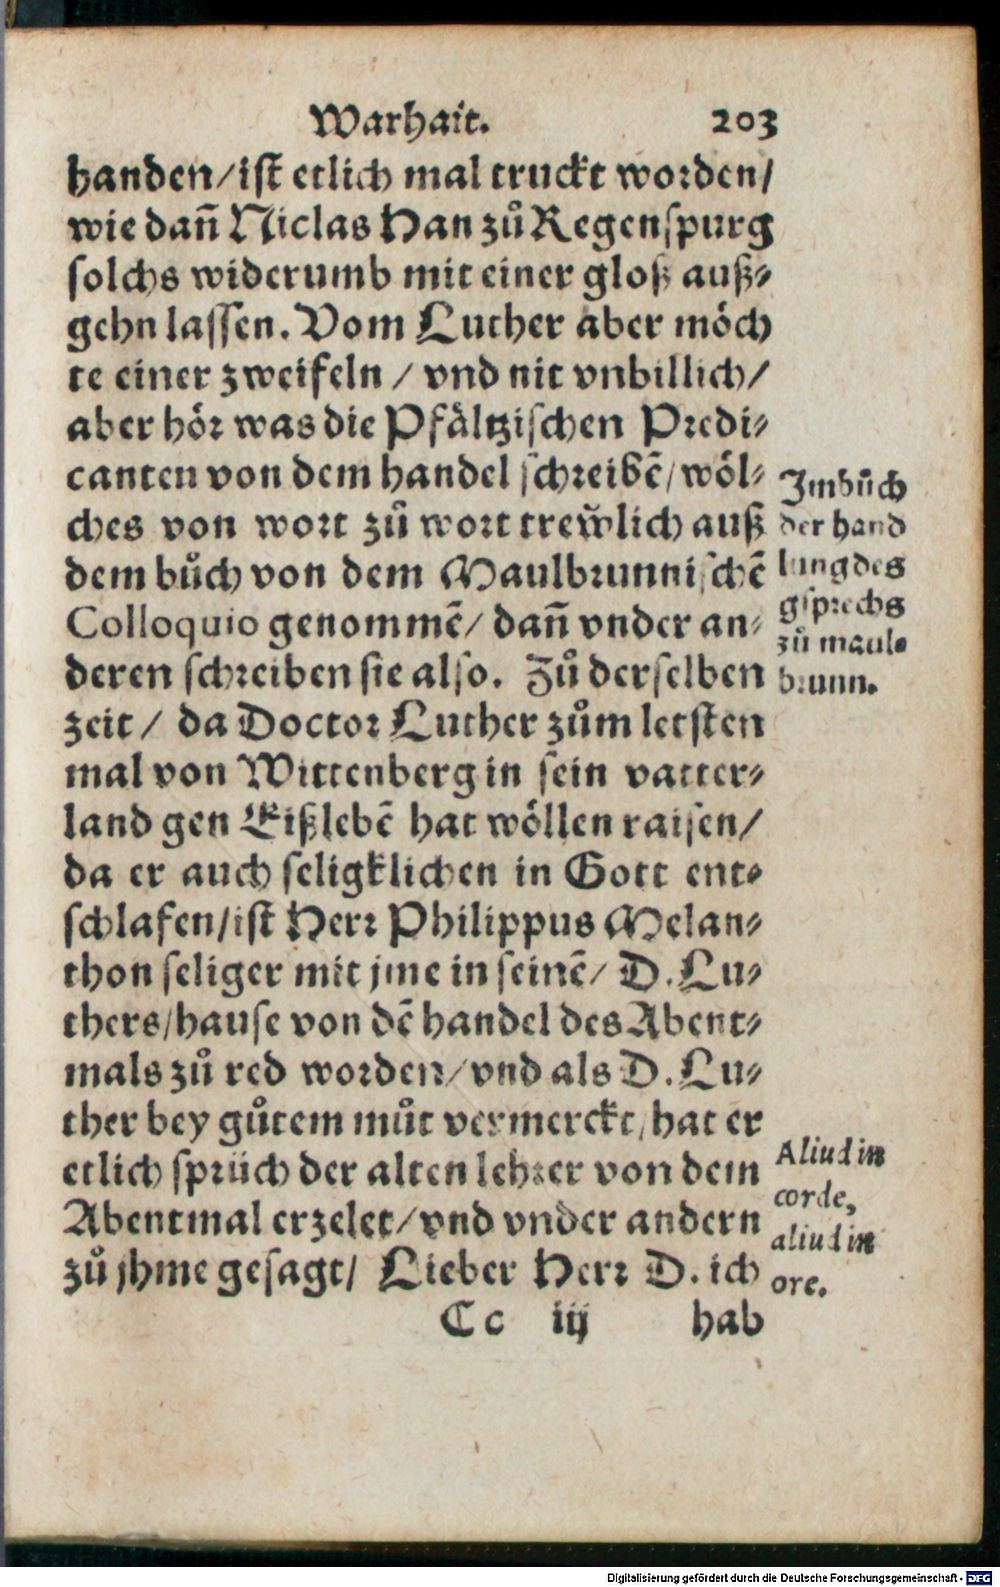 Warhait. 203
handen/ist etlich mal truckt worden/
wie dañ Niclas Han zů Regenspurg
solchs widerumb mit einer gloß auß-
gehn lassen. Vom Luther aber möch
te einer zweifeln / vnd nit vnbillich/
aber hör was die Pfältzischen Predi-
canten von dem handel schreibē/wöl-
ches von wort zů wort trewlich auß
dem bůch von dem Maulbrunnischē
Colloquio genommē/ dañ vnder an-
deren schreiben sie also. Zů derselben
zeit / da Doctor Luther zům letsten
mal von Wittenberg in sein vatter-
land gen Eißlebē hat wöllen raisen/
da er auch seligklichen in Gott ent-
schlafen/ist Herr Philippus Melan-
thon seliger mit jme in seinē/ D. Lu-
thers/hause von dē handel des Abent-
mals zů red worden/vnd als D. Lu-
ther bey gůtem můt vermerckt/hat er
etlich sprüch der alten lehrer von dem
Abentmal erzelet/vnd vnder andern
zů jhme gesagt/ Lieber Herr D. ich
Cc iij hab
Im bůch
der hand
lung des
gsprechs
zů maul-
brunn.
Aliud in
corde,
aliud in
ore.
Digitalisierung gefördert durch die Deutsche Forschungsgemeinschaft - DFG